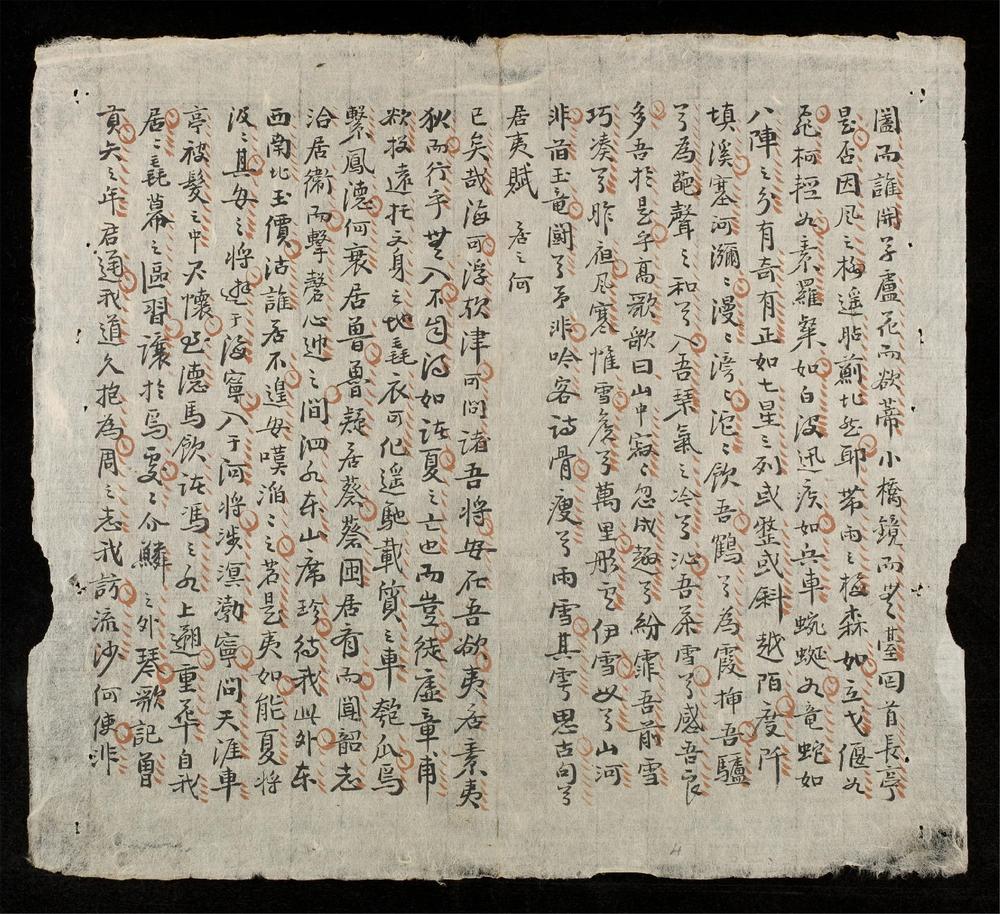 闔而誰開乎盧花而欲蒂小橋鏡而無䑓回首長亭
是否因風之梅遥貼薊北然耶帶雨之梅森如立戈偃如
飛柯輕如素羅粲如白波迅疾如兵車蜿蜒如竜蛇如
八陣之分有奇有正如七星之列或整或斜越陌度阡
填溪塞河瀰〻漫〻滂〻沱〻飲吾鶴兮為霞揷吾驢
兮為葩聲之和兮入吾琴氣之冷兮沁吾茶雪兮感吾良
多吾於是乎高歌歌曰山中寂〻忽成趣兮紛霏吾前雪
巧湊兮昨夜風寒惟雪虐兮萬里彤雲伊雪如兮山河
非昔玉竜鬪兮予非吟客詩骨瘦兮雨雪其雱思古句兮
居夷賦 居之何
已矣哉海可浮欤津可問諸吾將安在吾欲夷居素夷
狄而行乎無入不自得如諸夏之亡也而豈徒虛章甫
欲投遠托文身之地毳衣可化遥馳載質之車匏瓜焉
繫鳳德何衰居魯魯疑居蔡蔡困居齊而聞韶忘
洽居衛而擊磬心迎之間泗水东山席珍待我此外东
西南北玉價沽誰居不遑安嘆滔〻之若是夷如能夏將
汲〻其安之將遊于海寧入于河將涉溟渤寧問天涯車
亭被髮之中天懷明德馬飲諸馮之水上遡重華自我
居〻毳幕之區習讓於焉雯〻介鱗之外琴歌記曾
貢矢之年君通我道久抱為周之志我訪流沙何使非